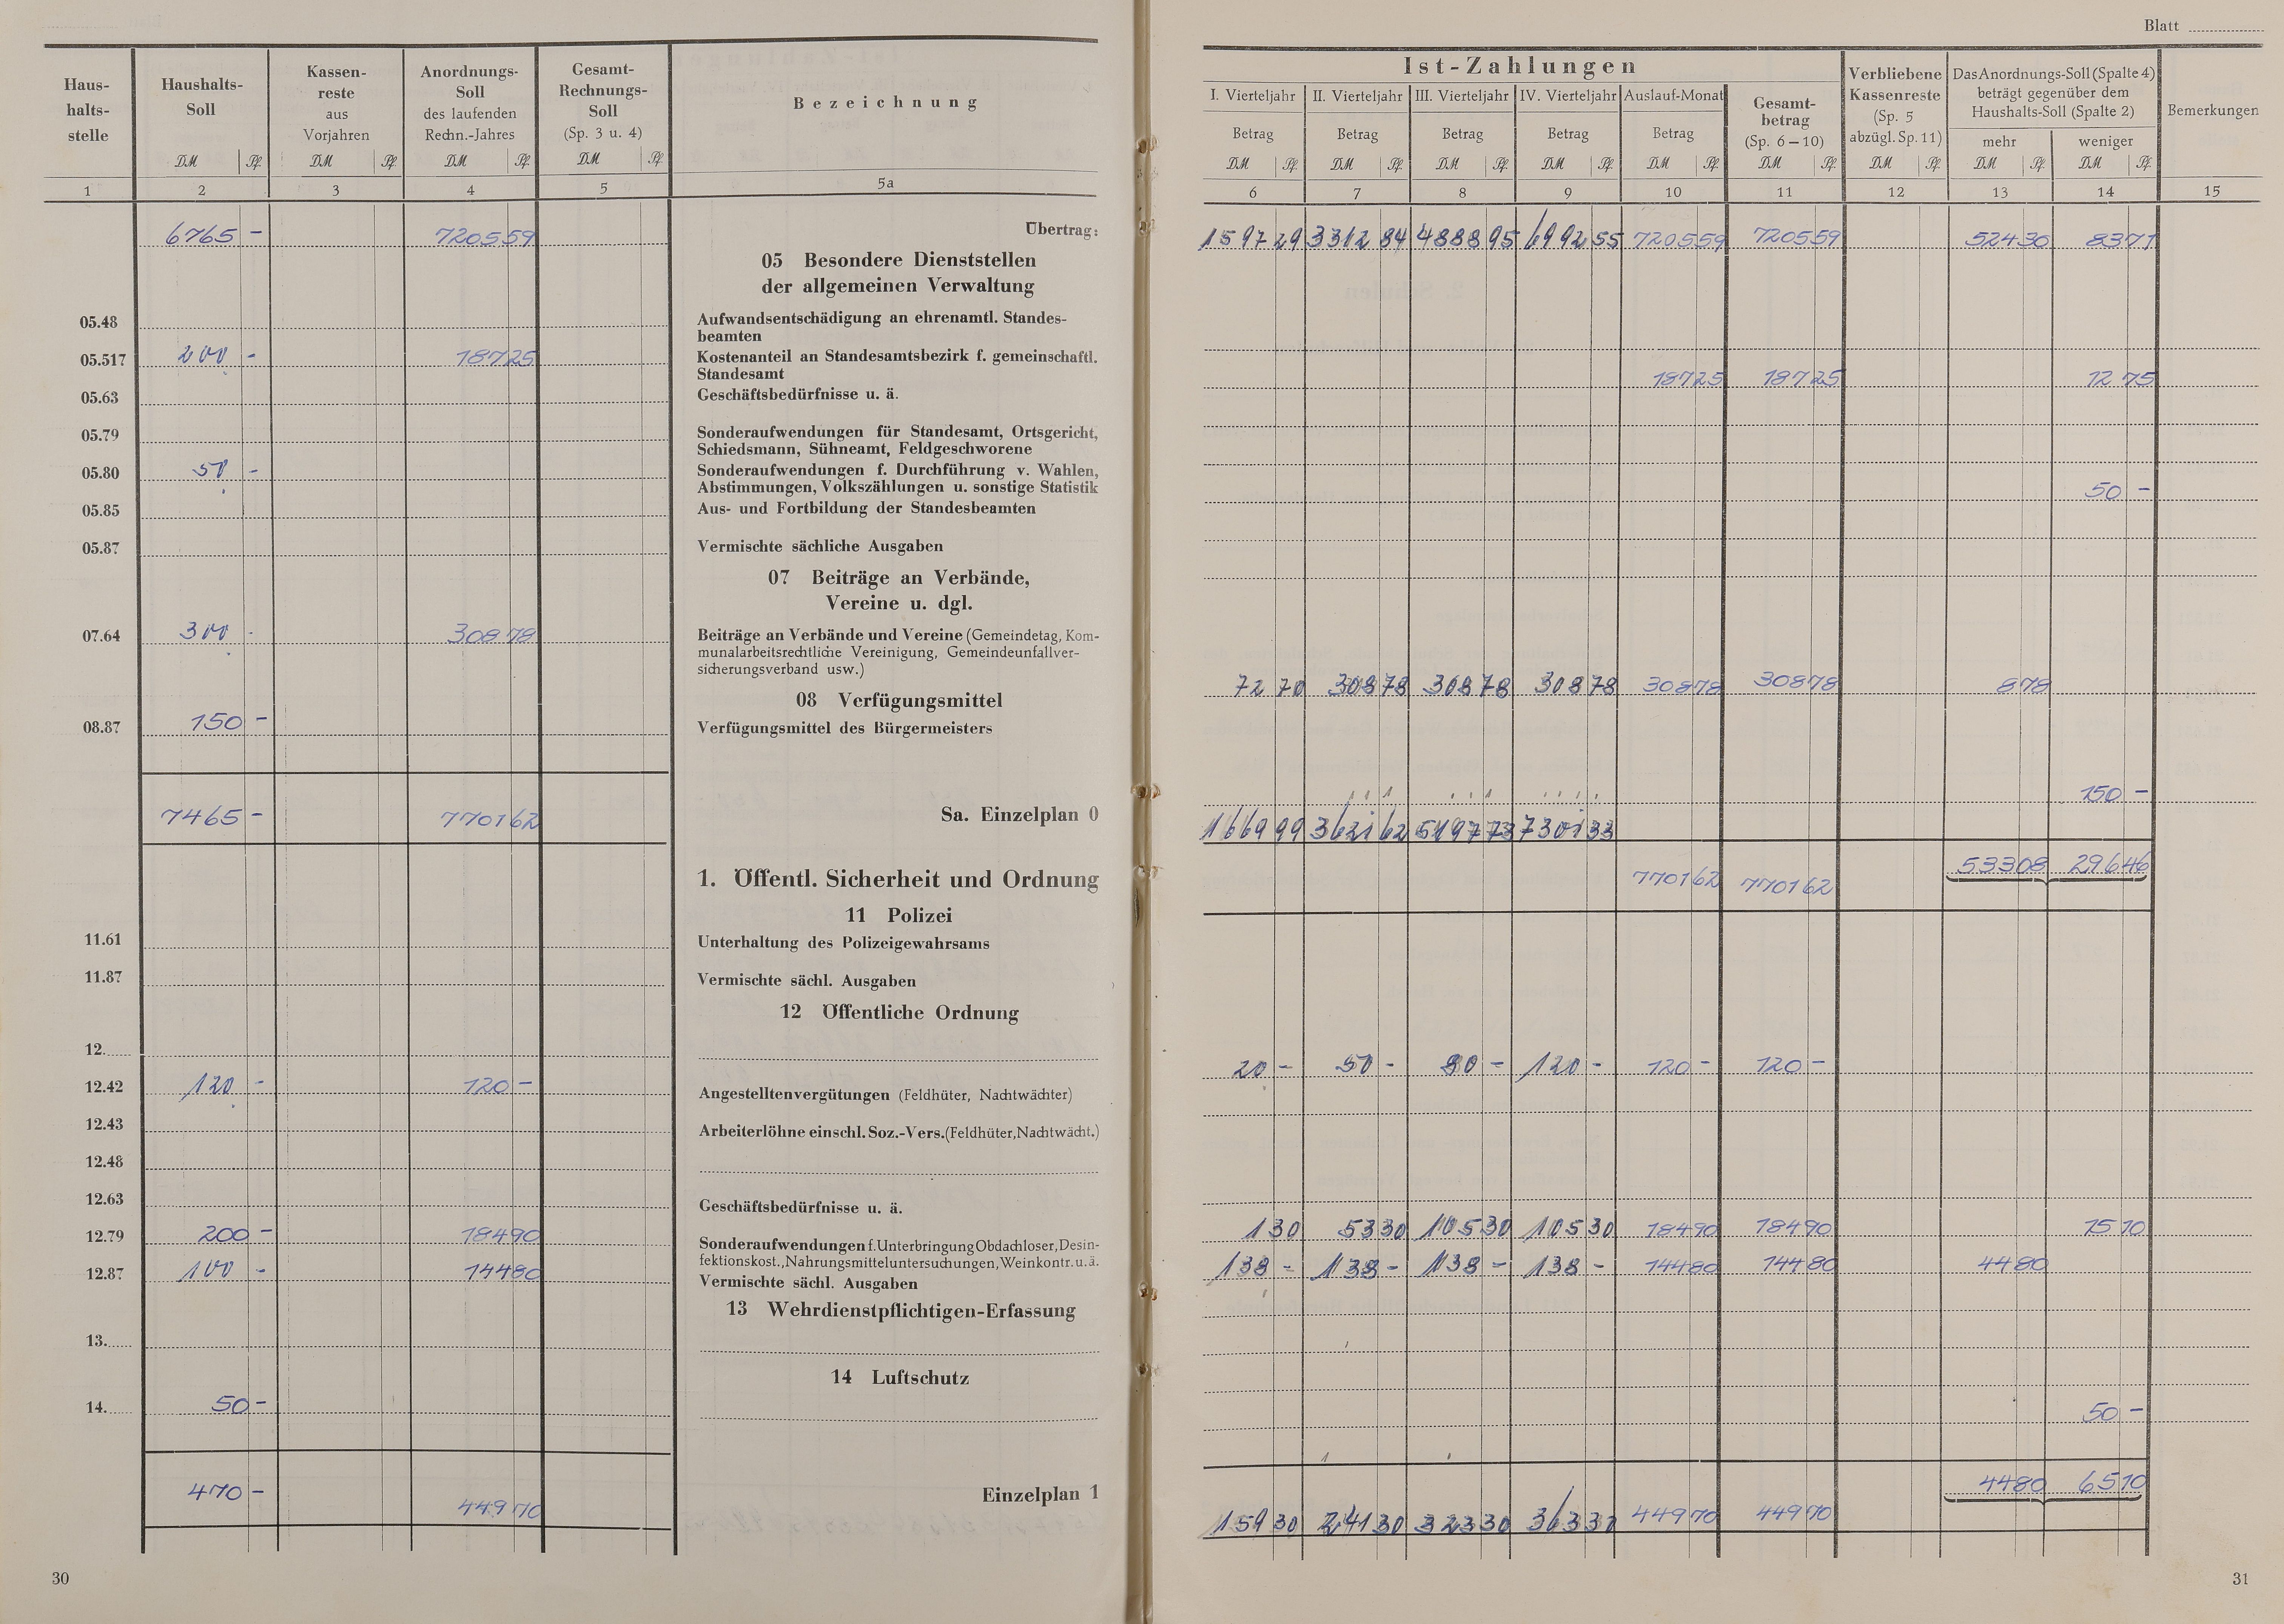 Blatt
Haus-
halts-
stelle
Haushalts-
Soll
Kassen-
reste
aus
Vorjahren
Anordnungs-
Soll
des laufenden
Rechn.-Jahres
Gesamt-
Rechnungs-
Soll
(Sp. 3 u. 4)
Bezeichnung
DM Pf. DM Pf. DM Pf. DM Pf.
1 2 3 4 5 5a
6765 – 7205 59 Übertrag:
05 Besondere Dienststellen
der allgemeinen Verwaltung
05.48 Aufwandsentschädigung an ehrenamtl. Standes-
beamten
05.517 200 - 187 25 Kostenanteil an Standesamtsbezirk f. gemeinschaftl.
Standesamt
05.63 Geschäftsbedürfnisse u. ä.
05.79 Sonderaufwendungen für Standesamt, Ortsgericht,
Schiedsmann, Sühneamt, Feldgeschworene
05.80 50 - Sonderaufwendungen f. Durchführung v. Wahlen,
Abstimmungen, Volkszählungen u. sonstige Statistik
05.85 Aus- und Fortbildung der Standesbeamten
05.87 Vermischte sächliche Ausgaben
07 Beiträge an Verbände,
Vereine u. dgl.
07.64 300 - 308 78 Beiträge an Verbände und Vereine (Gemeindetag, Kom-
munalarbeitsrechtliche Vereinigung, Gemeindeunfallver-
sicherungsverband usw.)
08 Verfügungsmittel
08.87 150 – Verfügungsmittel des Bürgermeisters
7465 – 7701 62 Sa. Einzelplan 0
1. Öffentl. Sicherheit und Ordnung
11 Polizei
11.61 Unterhaltung des Polizeigewahrsams
11.87 Vermischte sächl. Ausgaben
12 Öffentliche Ordnung
12.
12.42 120 - 120 – Angestelltenvergütungen (Feldhüter, Nachtwächter)
12.43 Arbeiterlöhne einschl. Soz.-Vers. (Feldhüter, Nachtwächt.)
12.48
12.63 Geschäftsbedürfnisse u. ä.
12.79 200 – 184 90 Sonderaufwendungen f. Unterbringung Obdachloser, Desin-
fektionskost., Nahrungsmitteluntersuchungen, Weinkontr. u. ä.
12.87 100 - 144 80 Vermischte sächl. Ausgaben
13 Wehrdienstpflichtigen-Erfassung
13.
14 Luftschutz
14. 50 –
470 – 449 70 Einzelplan 1
30
Ist-Zahlungen
I. Vierteljahr II. Vierteljahr III. Vierteljahr IV. Vierteljahr Auslauf-Monat
Betrag Betrag Betrag Betrag Betrag
Gesamt-
betrag
(Sp. 6 – 10)
Verbliebene
Kassenreste
(Sp. 5
abzügl. Sp. 11)
Das Anordnungs-Soll (Spalte 4)
beträgt gegenüber dem
Haushalts-Soll (Spalte 2)
mehr weniger
Bemerkungen
DM Pf. DM Pf. DM Pf. DM Pf. DM Pf. DM Pf. DM Pf. DM Pf. DM Pf.
6 7 8 9 10 11 12 13 14 15
1597 29 3312 84 4888 95 6992 55 7205 59 7205 59 524 30 83 71
187 25 187 25 12 75
50 –
72 70 308 78 308 78 308 78 308 78 308 78 8 78
150 –
1669 99 3621 62 5197 73 7301 33
7701 62 7701 62 533 08 296 46
20 – 50 - 80 – 120 - 120 – 120 –
1 30 53 30 105 30 105 30 184 90 184 90 15 10
138 - 138 - 138 – 138 - 144 80 144 80 44 80
50 –
44 80 65 10
159 30 241 30 323 30 363 30 449 70 449 70
31